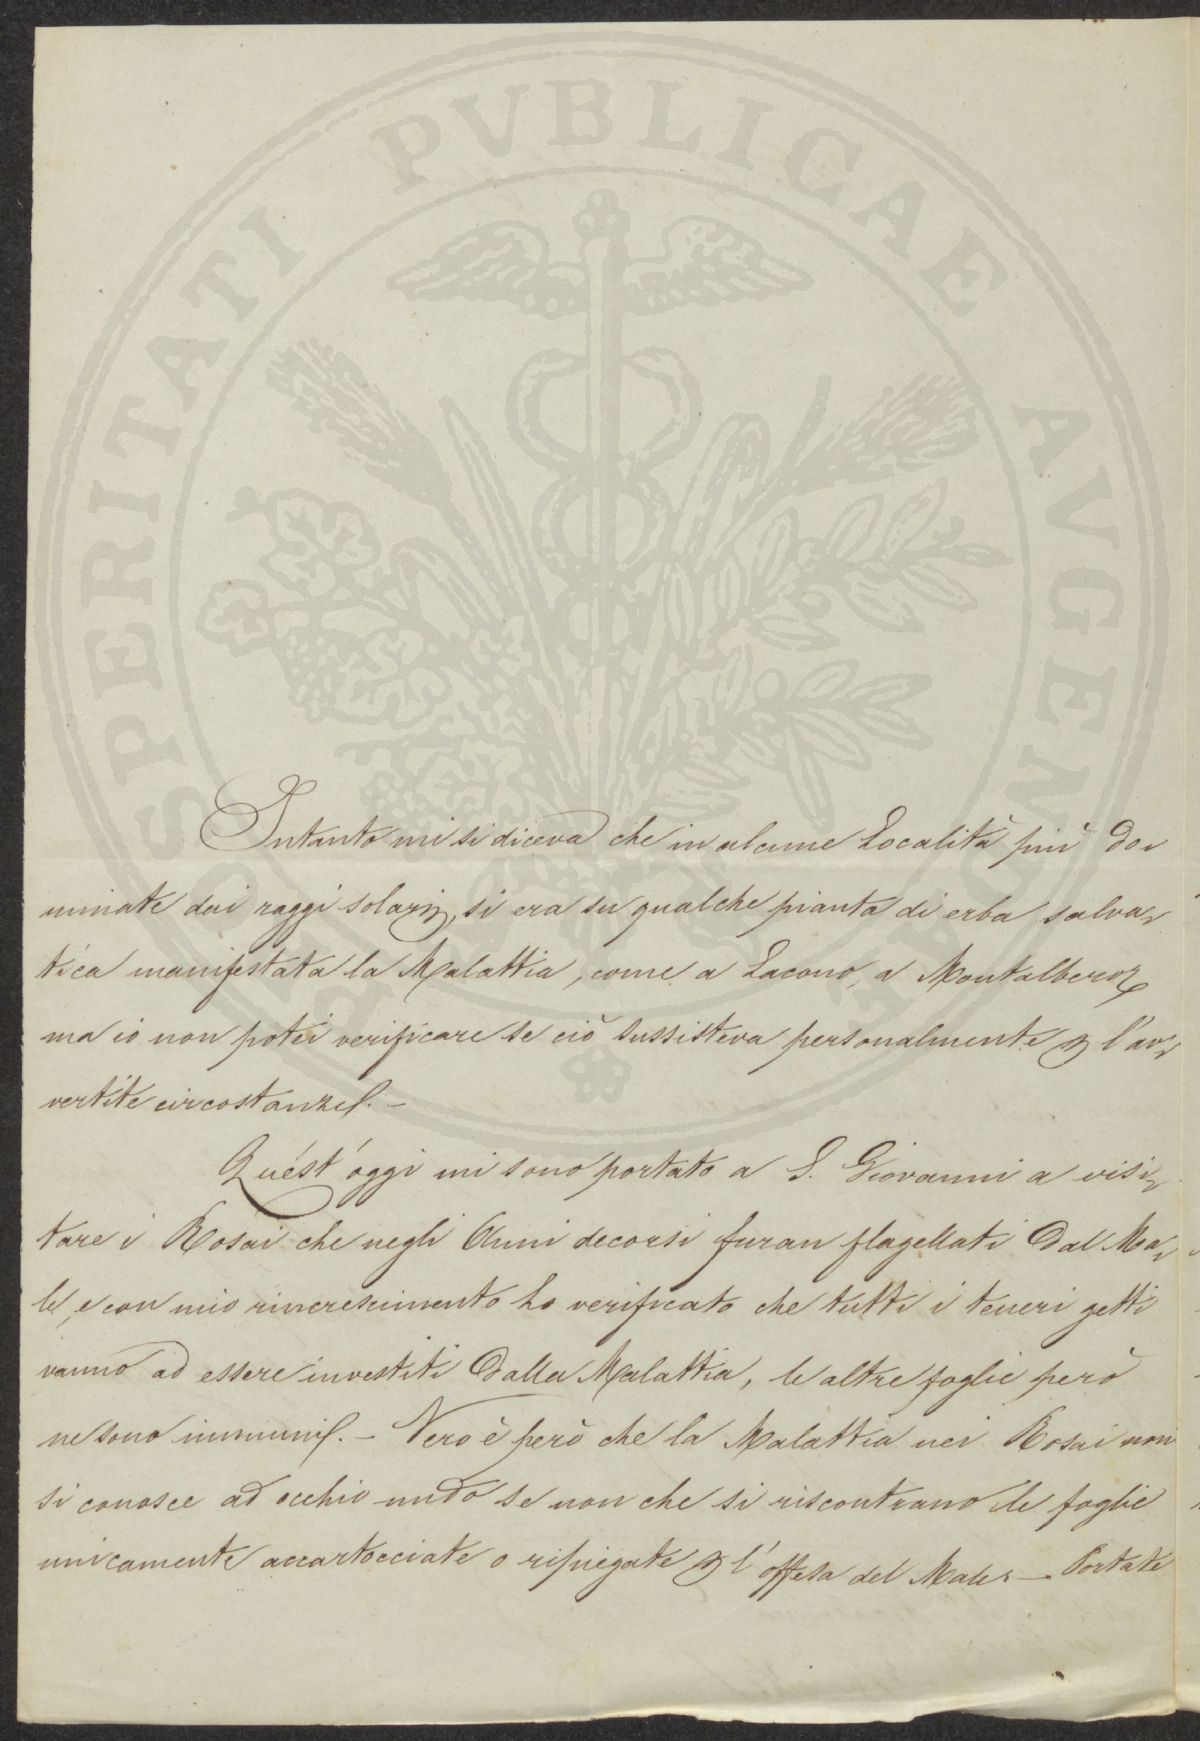 PROSPERITATI PVBLICAE AVGENDAE
Intanto mi si diceva che in alcune Località più do-
minate dai raggi solari, si era su qualche pianta di erba salva-
tica manifestata la Malattia, come a Lacono, a Montalbero,
ma io non potei verificare se ciò sussisteva personalmente p l'av-
vertite circostanze. -
Quest'oggi mi sono portato a S. Giovanni a visi-
tare i Rosai che negli Anni decorsi furan flagellati dal Ma-
le, e con mio rincrescimento ho verificato che tutti i teneri getti
vanno ad essere investiti dalla Malattia, le altre foglie però
ne sono immuni. - Vero è però che la Malattia nei Rosai non
si conosce ad occhio nudo se non che si riscontrano le foglie
unicamente accartocciate o ripiegate p l'offesa del Male. - Portate